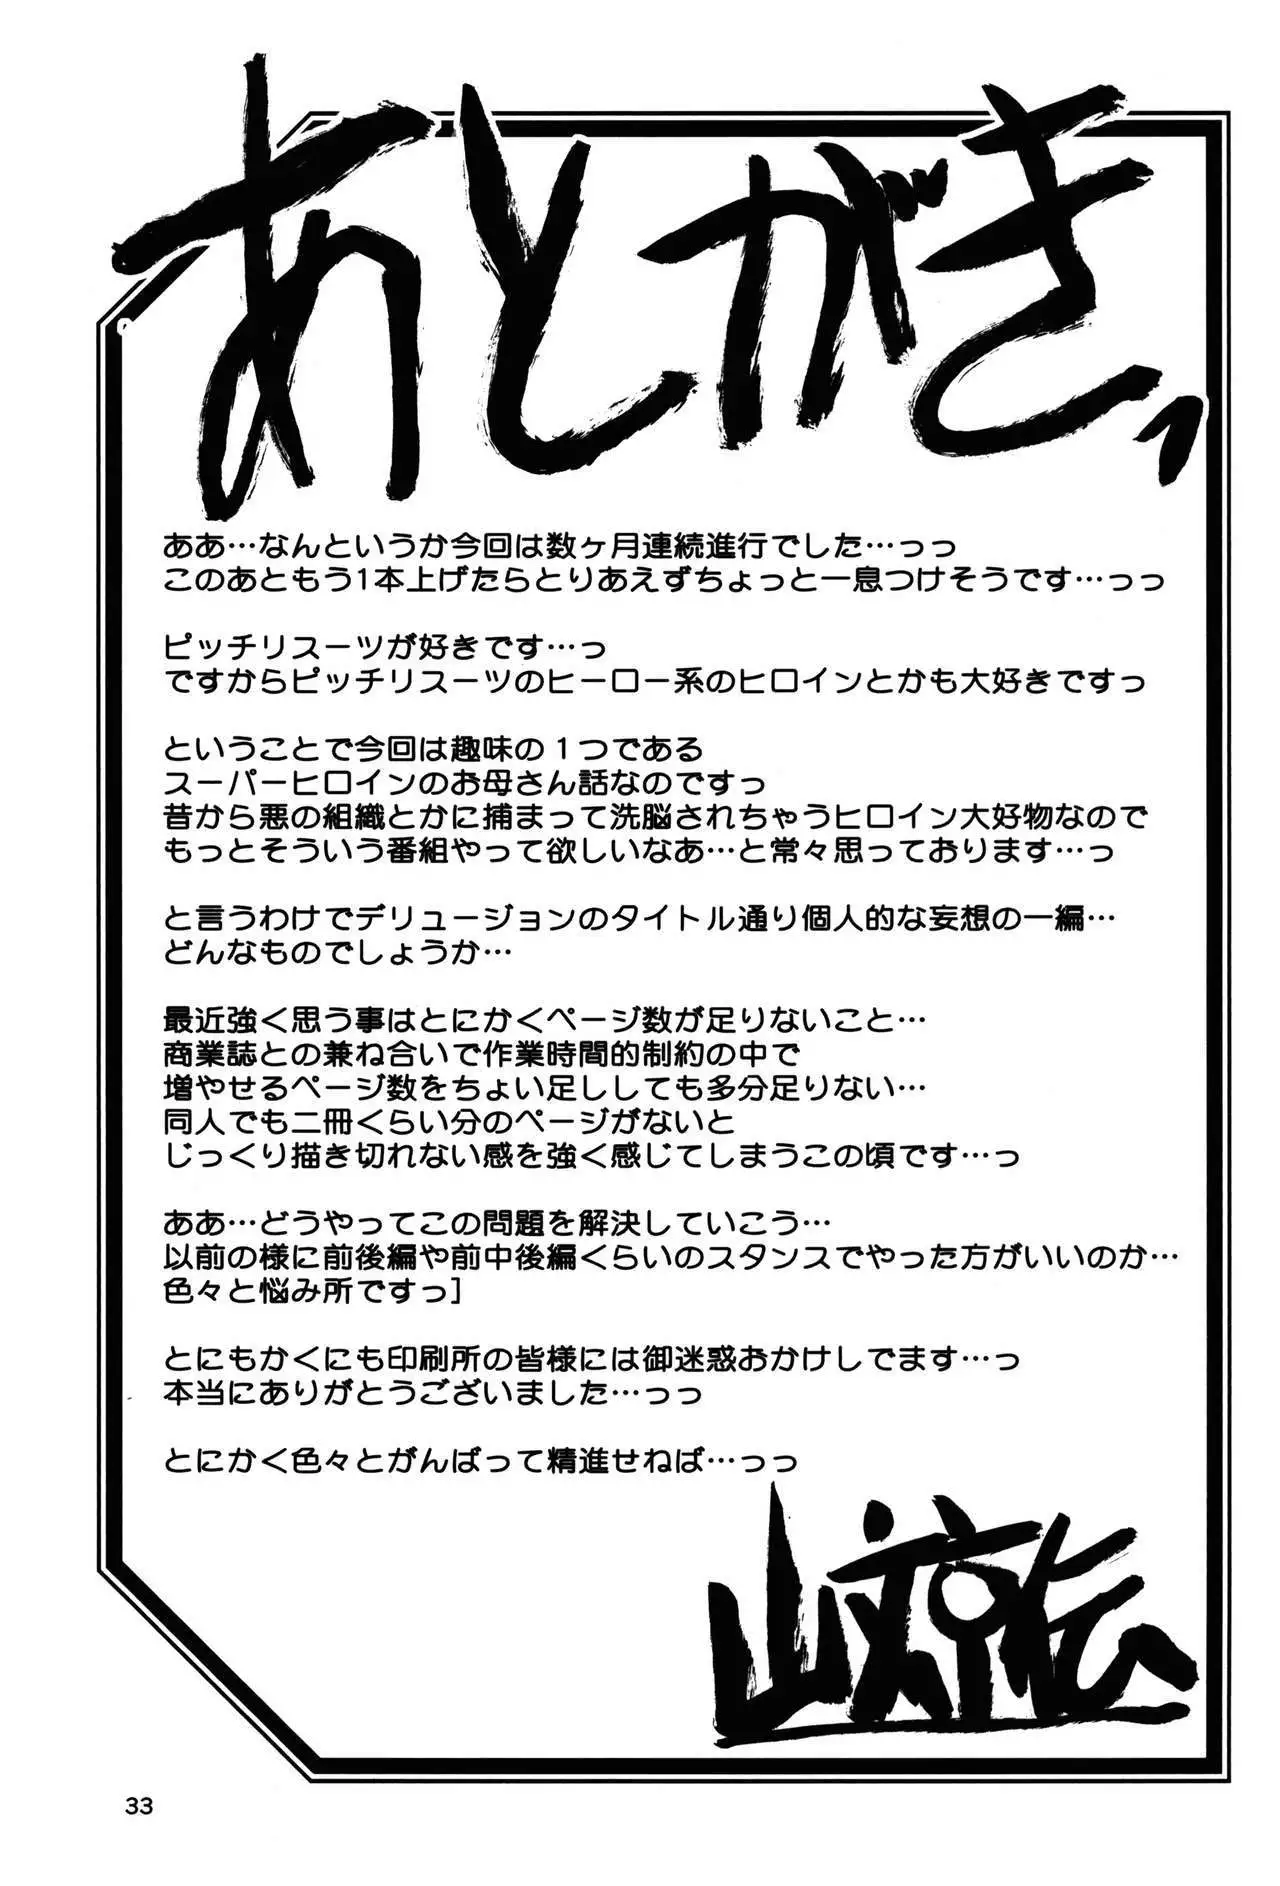 あとがきっ
ああ…なんというか今回は数ヶ月連続進行でした…っっ
このあともう1本上げたらとりあえずちょっと一息つけそうです…っっ
ピッチリスーツが好きです…っ
ですからピッチリスーツのヒーロー系のヒロインとかも大好きですっ
ということで今回は趣味の１つである
スーパーヒロインのお母さん話なのですっ
昔から悪の組織とかに捕まって洗脳されちゃうヒロイン大好物なので
もっとそういう番組やって欲しいなあ…と常々思っております…っ
と言うわけでデリュージョンのタイトル通り個人的な妄想の一編…
どんなものでしょうか…
最近強く思う事はとにかくページ数が足りないこと…
商業誌との兼ね合いで作業時間的制約の中で
増やせるページ数をちょい足ししても多分足りない…
同人でも二冊くらい分のページがないと
じっくり描き切れない感を強く感じてしまうこの頃です…っ
ああ…どうやってこの問題を解決していこう…
以前の様に前後編や前中後編くらいのスタンスでやった方がいいのか…
色々と悩み所ですっ]
とにもかくにも印刷所の皆様には御迷惑おかけしてます…っ
本当にありがとうございました…っっ
とにかく色々とがんばって精進せねば…っっ
33